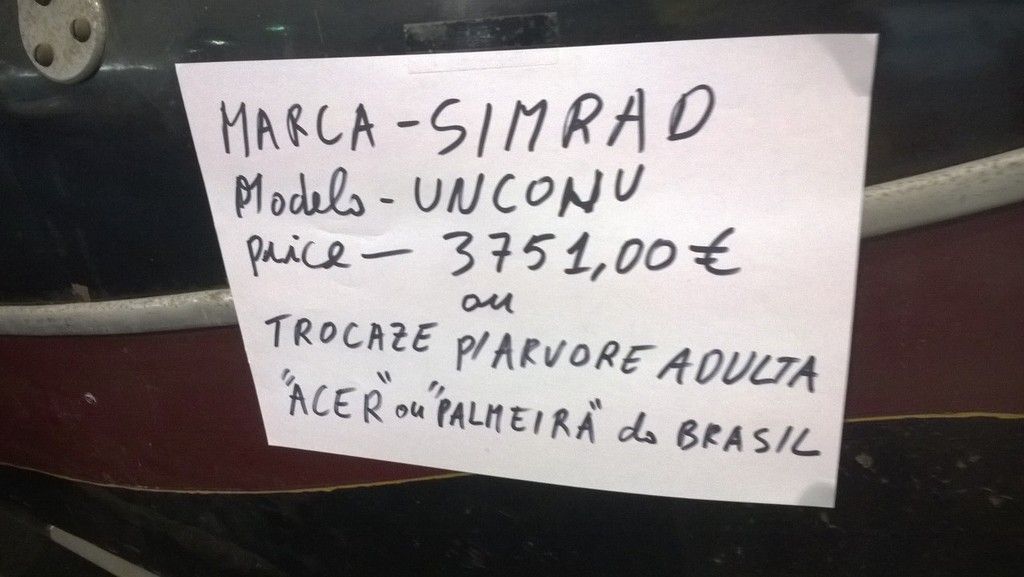 MARCA - SIMRAD
Modelo - UNCONU
price - 3751,00 €
ou
TROCAZE p/ARVORE ADULTA
"ACER" ou "PALMEIRA" do BRASIL